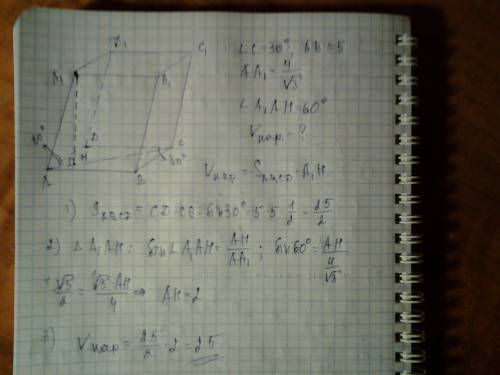 D₁ C₁
A₁ B₁
60°
D C
H 30°
A B
∠C=30°, AB=5
AA₁=4/√3
∠A₁AH=60°
Vпар - ?
Vпар = SABCD·A₁H
1) SABCD = CD·CB·Sin30°=5·5·1/2=25/2
2) △A₁AH: Sin∠A₁AH=AH/AA₁; Sin60°=AH/(4/√3)
√3/2=√3·AH/4 ⇒ AH=2
3) Vпар=25/2·2=25